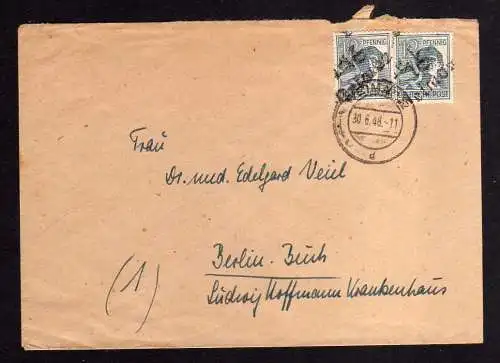 PFENNIG PFENNIG
POST
30.6.48.-11
Frau
Dr. med. Edelgard Veiel
Berlin-Buch
Ludwig Hoffmann Krankenhaus
(1)